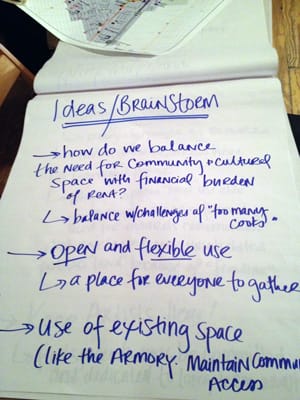 Ideas/BRAINSTORM
→ how do we balance
the need for community + cultural
space with financial burden
of RENT?
↳ balance w/challenges of "too many
cooks".
→ OPEN and flexible use
↳ a place for everyone to gather
→ Use of existing space
(like the ARMORY. MAINTAIN COMMUN
ACCESS